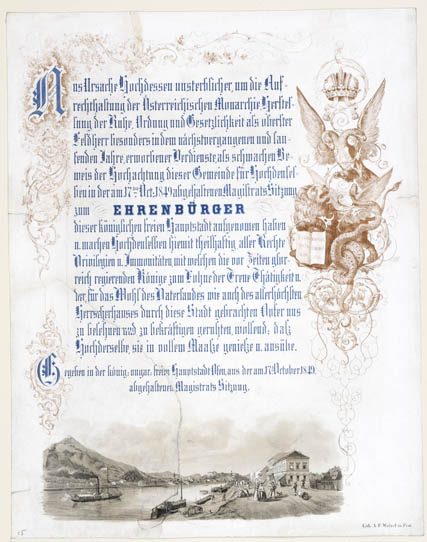 Aus Ursache Hochdessen unsterblicher, um die Auf-
rechthaltung der Österreichischen Monarchie, Herstel-
lung der Ruhe, Ordnung und Gesetzlichkeit als oberster
Feldherr besonders in dem nächstvergangenen und lau-
fenden Jahre, erworbener Verdienste, als schwachen Be-
weis der Hochachtung dieser Gemeinde für Hochdensel-
ben in der am 17ten Oct. 1849 abgehaltenen Magistrats Sitzung
zum EHRENBÜRGER
dieser königlichen freien Hauptstadt aufgenomen haben
u. machen Hochdenselben hiemit theilhaftig aller Rechte
Privilegien u. Immunitäten mit welchen die vor Zeiten glor-
reich regierenden Könige zum Lohne der Treue Thätigkeit u.
der, für das Wohl des Vaterlandes wie auch des allerhöchsten
Herrscherhauses durch diese Stadt gebrachten Opfer uns
zu belehnen und zu bekräftigen geruhten, wollend, daß
Hochderselbe sie in vollem Maaße genieße u. ausübe.
Gegeben in der königl: ungar: freien Hauptstadt Ofen, aus der am 17. October 1849.
abgehaltenen Magistrats Sitzung.
Lith. A. F. Walzel in Pest
15